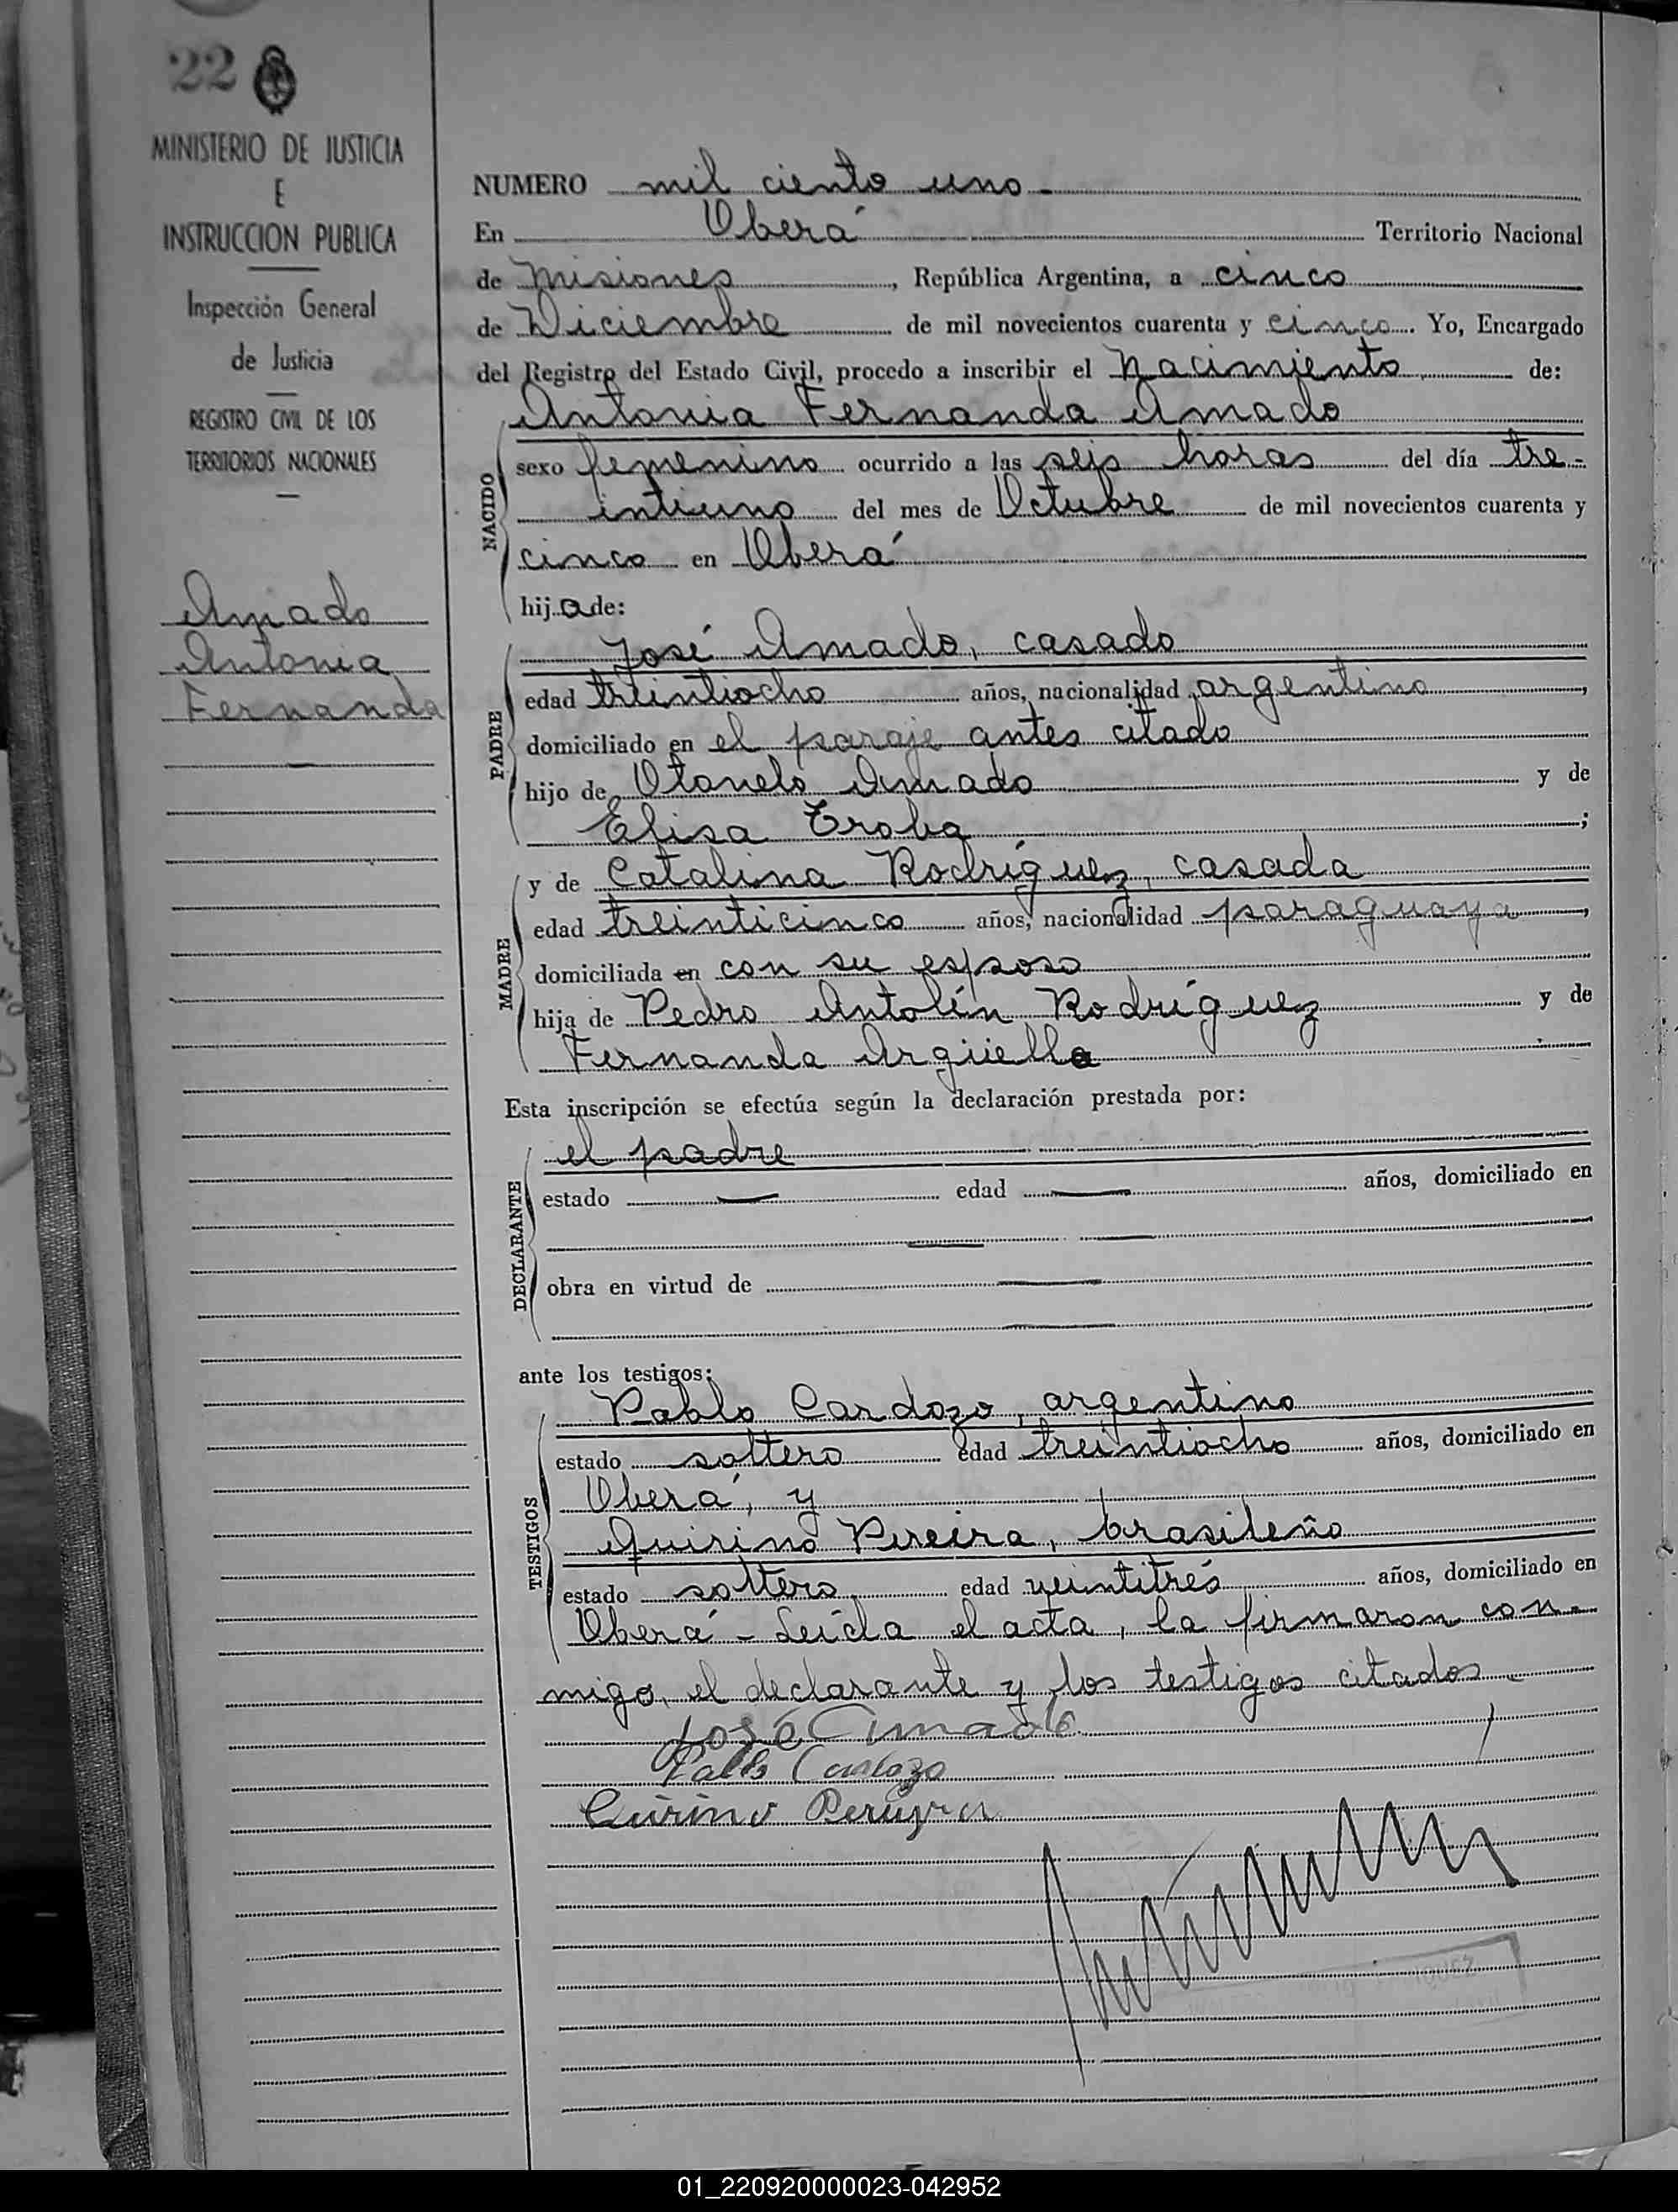 22
MINISTERIO DE JUSTICIA
E
INSTRUCCION PUBLICA
Inspección General
de Justicia
REGISTRO CIVIL DE LOS
TERRITORIOS NACIONALES
Amado
Antonia
Fernanda
NUMERO mil ciento uno -
En Oberá Territorio Nacional
de Misiones, República Argentina, a cinco
de Diciembre de mil novecientos cuarenta y cinco. Yo, Encargado
del Registro del Estado Civil, procedo a inscribir el nacimiento de:
Antonia Fernanda Amado
NACIDO
sexo femenino ocurrido a las seis horas del día tre-
intiuno del mes de Octubre de mil novecientos cuarenta y
cinco en Oberá
hija de:
PADRE
José Amado, casado
edad treintiocho años, nacionalidad argentino,
domiciliado en el paraje antes citado
hijo de Otonelo Amado y de
Elisa Troba;
MADRE
y de Catalina Rodríguez, casada
edad treinticinco años, nacionalidad paraguaya,
domiciliada en con su esposo
hija de Pedro Antolín Rodríguez y de
Fernanda Argüello
Esta inscripción se efectúa según la declaración prestada por:
DECLARANTE
el padre
estado — edad — años, domiciliado en
— —
obra en virtud de —
—
ante los testigos:
TESTIGOS
Pablo Cardozo, argentino
estado soltero edad treintiocho años, domiciliado en
Oberá, y
Quirino Pereira, brasileño
estado soltero edad veintitrés años, domiciliado en
Oberá - Leída el acta, la firmaron con-
migo, el declarante y los testigos citados -
José Amado
Pablo Cardozo
Quirino
01_220920000023-042952